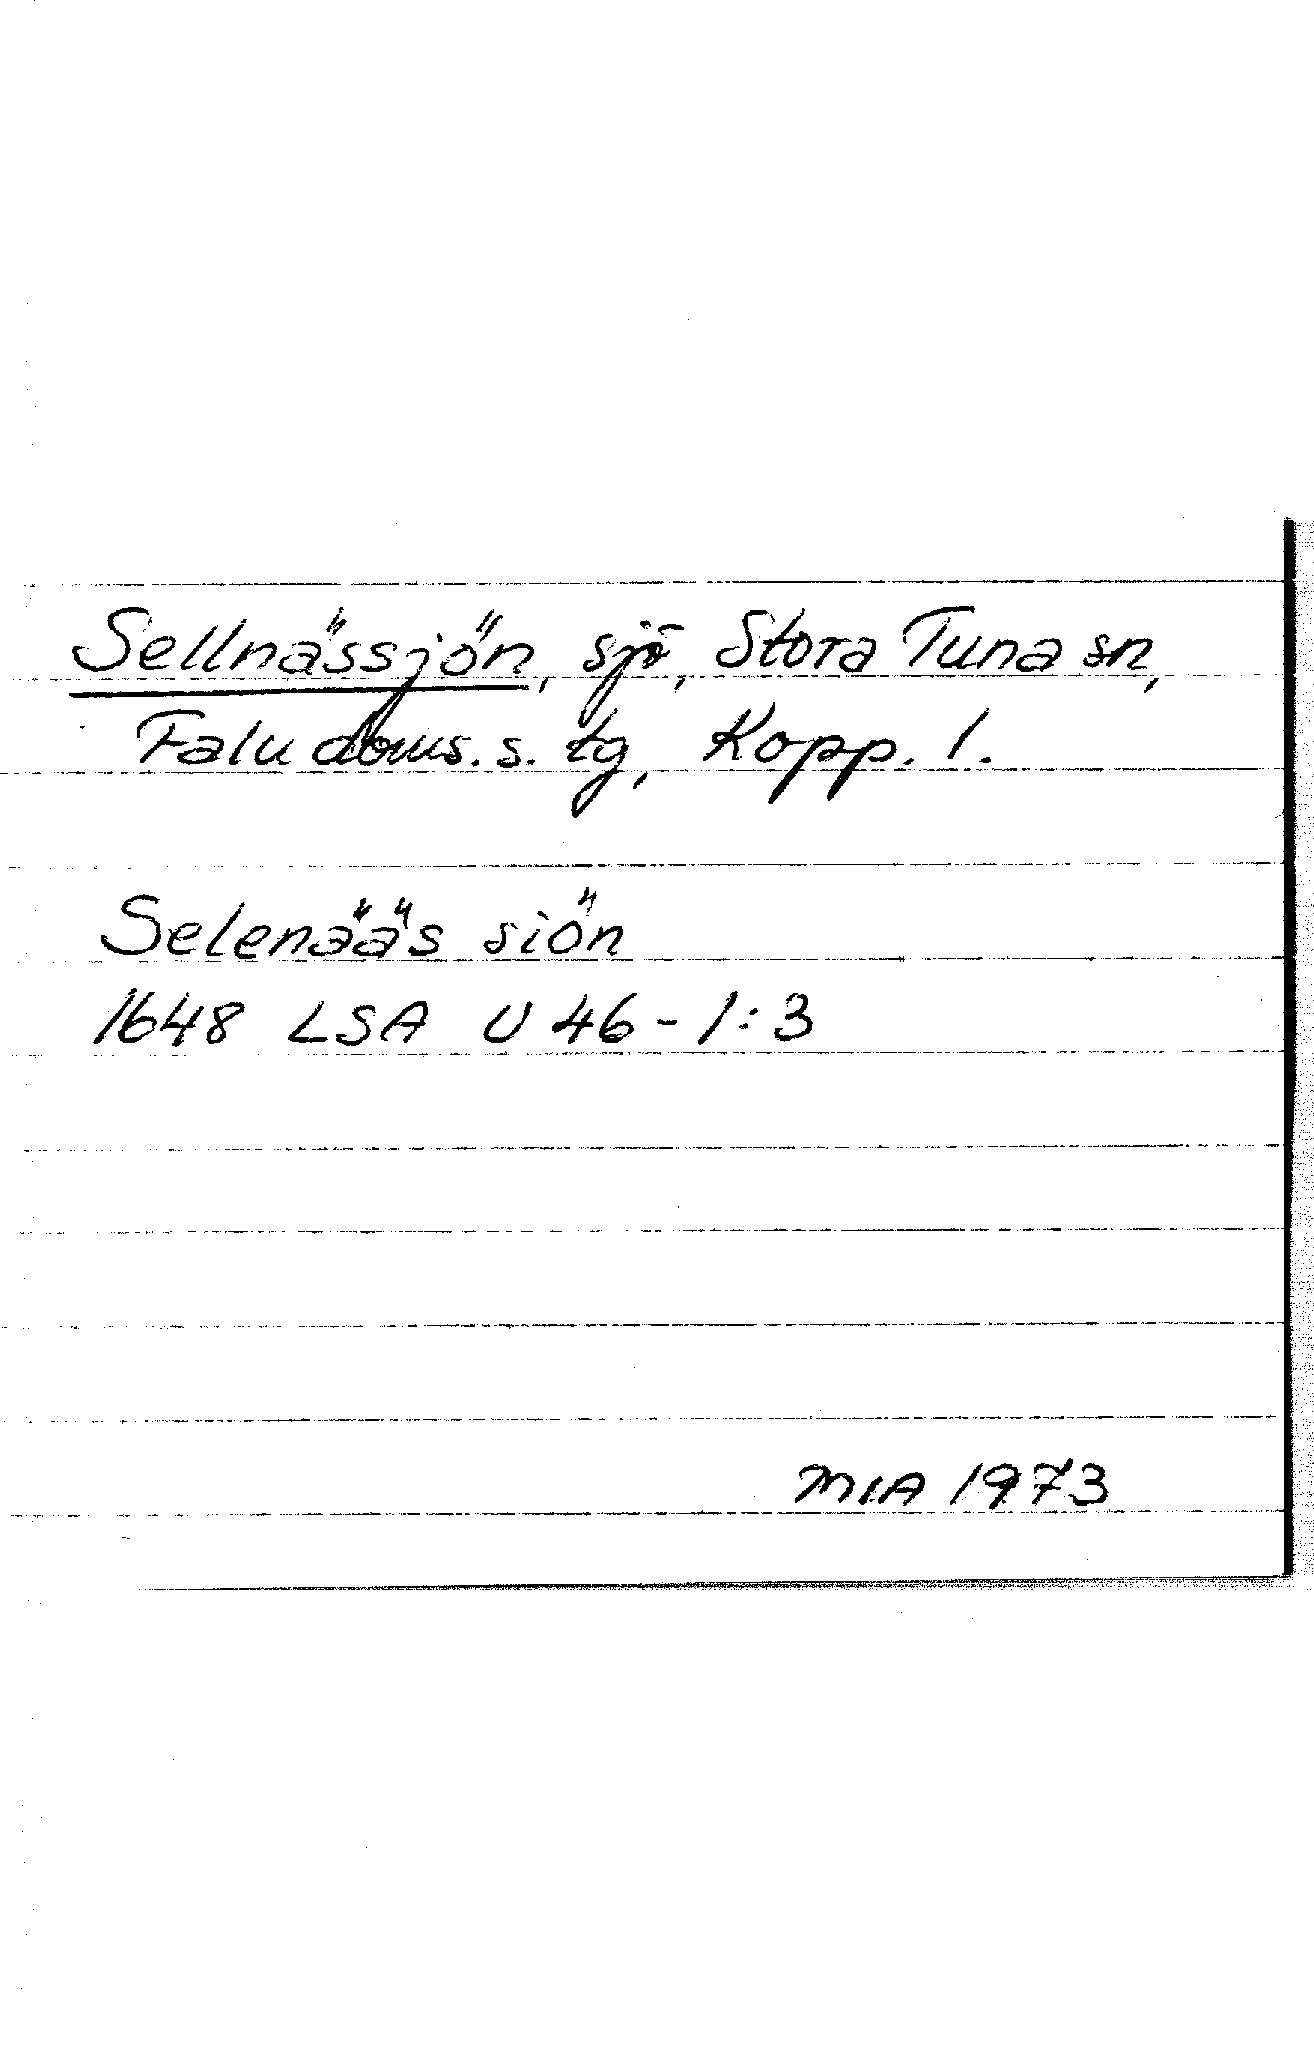 Sellnässjön, sjö, Stora Tuna sn,
Falu doms. s. tg, Kopp. l.
Selenääs siön
1648 LSA U 46-1:3
MIA 1973